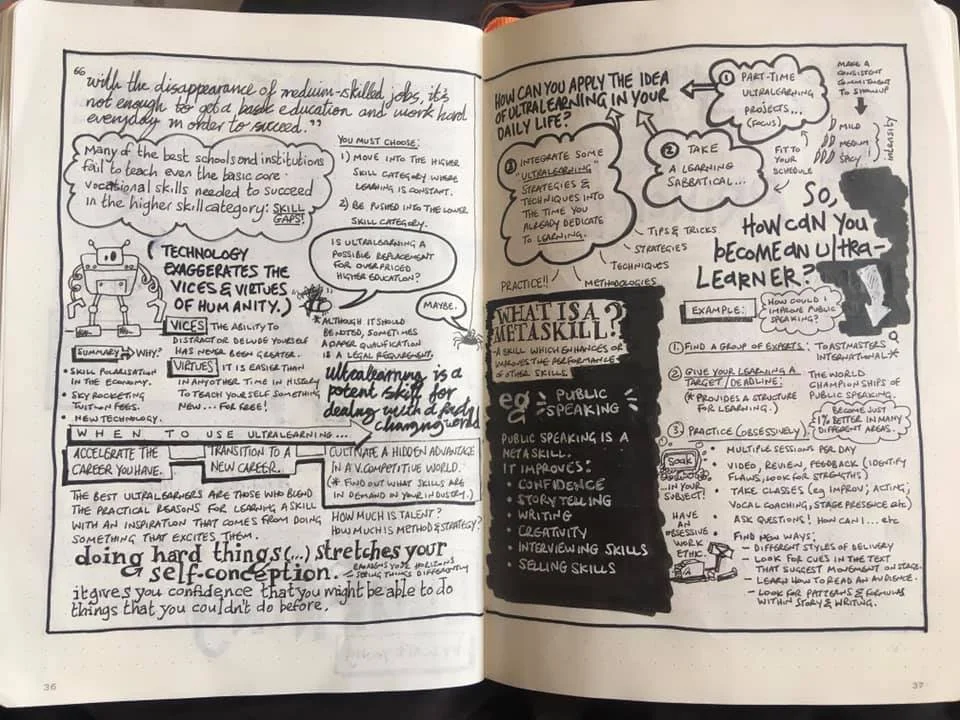 "with the disappearance of medium-skilled jobs, it's
not enough to get a basic education and work hard
everyday in order to succeed."
Many of the best schools and institutions
fail to teach even the basic core
vocational skills needed to succeed
in the higher skill category: SKILL
GAPS!
YOU MUST CHOOSE:
1) MOVE INTO THE HIGHER
SKILL CATEGORY WHERE
LEARNING IS CONSTANT.
2) BE PUSHED INTO THE LOWER
SKILL CATEGORY.
(TECHNOLOGY
EXAGGERATES THE
VICES & VIRTUES
OF HUMANITY.)
IS ULTRALEARNING A
POSSIBLE REPLACEMENT
FOR OVERPRICED
HIGHER EDUCATION?
MAYBE.
VICES THE ABILITY TO
DISTRACT OR DELUDE YOURSELF
HAS NEVER BEEN GREATER.
VIRTUES IT IS EASIER THAN
IN ANY OTHER TIME IN HISTORY
TO TEACH YOURSELF SOMETHING
NEW... FOR FREE!
* ALTHOUGH IT SHOULD
BE NOTED, SOMETIMES
A PAPER QUALIFICATION
IS A LEGAL REQUIREMENT.
SUMMARY WHY?
• SKILL POLARISATION
IN THE ECONOMY.
• SKY ROCKETING
TUITION FEES.
• NEW TECHNOLOGY.
ultralearning is a
potent skill for
dealing with a
changing world
WHEN TO USE ULTRALEARNING...
ACCELERATE THE
CAREER YOU HAVE.
TRANSITION TO A
NEW CAREER.
CULTIVATE A HIDDEN ADVANTAGE
IN A V. COMPETITIVE WORLD.
(* FIND OUT WHAT SKILLS ARE
IN DEMAND IN YOUR INDUSTRY.)
THE BEST ULTRALEARNERS ARE THOSE WHO BLEND
THE PRACTICAL REASONS FOR LEARNING A SKILL
WITH AN INSPIRATION THAT COMES FROM DOING
SOMETHING THAT EXCITES THEM.
HOW MUCH IS TALENT?
HOW MUCH IS METHOD & STRATEGY?
doing hard things (...) stretches your
self-conception.
YOUR HORIZONS
SEEING THINGS DIFFERENTLY
it gives you confidence that you might be able to do
things that you couldn't do before.
36
HOW CAN YOU APPLY THE IDEA
OF ULTRALEARNING IN YOUR
DAILY LIFE?
1 PART-TIME
ULTRALEARNING
PROJECTS...
(FOCUS)
MAKE A
CONSISTENT
COMMITMENT
TO SHOW UP
MILD
MEDIUM
SPICY
intensity
FIT TO
YOUR
SCHEDULE
2 TAKE
A LEARNING
SABBATICAL...
3 INTEGRATE SOME
"ULTRALEARNING"
STRATEGIES &
TECHNIQUES INTO
THE TIME YOU
ALREADY DEDICATE
TO LEARNING.
TIPS & TRICKS
STRATEGIES
TECHNIQUES
METHODOLOGIES
PRACTICE!!
WHAT IS A
METASKILL?
- A SKILL WHICH ENHANCES OR
IMPROVES THE PERFORMANCE
OF OTHER SKILLS.
eg PUBLIC
SPEAKING
PUBLIC SPEAKING IS A
METASKILL.
IT IMPROVES:
• CONFIDENCE
• STORYTELLING
• WRITING
• CREATIVITY
• INTERVIEWING SKILLS
• SELLING SKILLS
So,
HOW CAN YOU
become an ultra-
LEARNER?
EXAMPLE:
HOW COULD I
IMPROVE PUBLIC
SPEAKING?
1. FIND A GROUP OF EXPERTS: TOASTMASTERS
INTERNATIONAL*
2 GIVE YOUR LEARNING A
TARGET/DEADLINE:
(* PROVIDES A STRUCTURE
FOR LEARNING.)
THE WORLD
CHAMPIONSHIPS OF
PUBLIC SPEAKING.
3. PRACTICE (OBSESSIVELY)
BECOME JUST
1% BETTER IN MANY
DIFFERENT AREAS.
Soak
...IN YOUR
SUBJECT!
• MULTIPLE SESSIONS PER DAY
• VIDEO, REVIEW, FEEDBACK (IDENTIFY
FLAWS, LOOK FOR STRENGTHS)
• TAKE CLASSES (eg IMPROV; ACTING;
VOCAL COACHING, STAGE PRESENCE etc)
• ASK QUESTIONS! HOW CAN I... etc
HAVE
AN
OBSESSIVE
WORK
ETHIC.
• FIND NEW WAYS:
- DIFFERENT STYLES OF DELIVERY
- LOOK FOR CUES IN THE TEXT
THAT SUGGEST MOVEMENT ON STAGE.
- LEARN HOW TO READ AN AUDIENCE.
- LOOK FOR PATTERNS & FORMULAS
WITHIN STORY & WRITING.
37